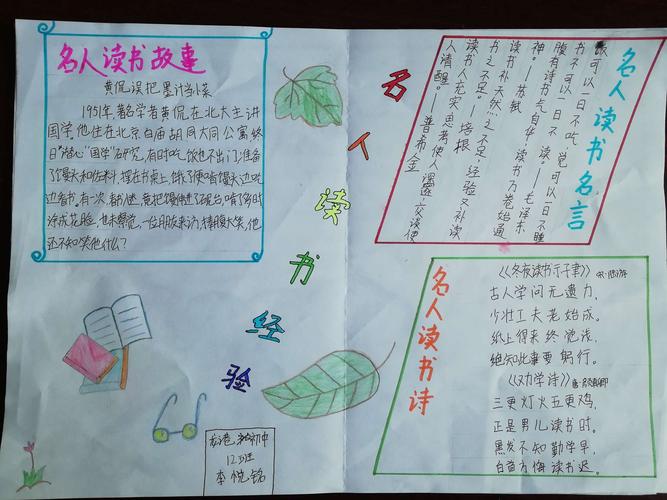 名人读书故事
黄侃误把墨汁当小菜
1951年,著名学者黄侃在北大主讲
国学他住在北京白庙胡同大同公寓终
日"潜心"国学"研究,有时吃饭也不出门,准备
了馒头和佐料,摆在书桌上,饿了便啃馒头,边吃
边看书,有一次,看书入迷,竟把馒头伸进了砚台,啃了多时
涂成花脸,也未察觉,一位朋友来访,捧腹大笑,他
还不知笑他什么?
名人读书经验
名人读书名言
饭可以一日不吃,觉可以一日不睡
书不可以一日不读。——毛泽东
腹有诗书气自华,读书万卷始通
神。——苏轼
读书补天然之不足,经验又补读
书之不足。——培根
读书人充实,思考使人深邃,交谈使
人清醒。——普希金
名人读书诗
《冬夜读书示子聿》宋·陆游
古人学问无遗力,
少壮工夫老始成。
纸上得来终觉浅,
绝知此事要躬行。
《劝学诗》唐·颜真卿
三更灯火五更鸡,
正是男儿读书时。
黑发不知勤学早,
白首方悔读书迟。
初中
12班
李悦铭